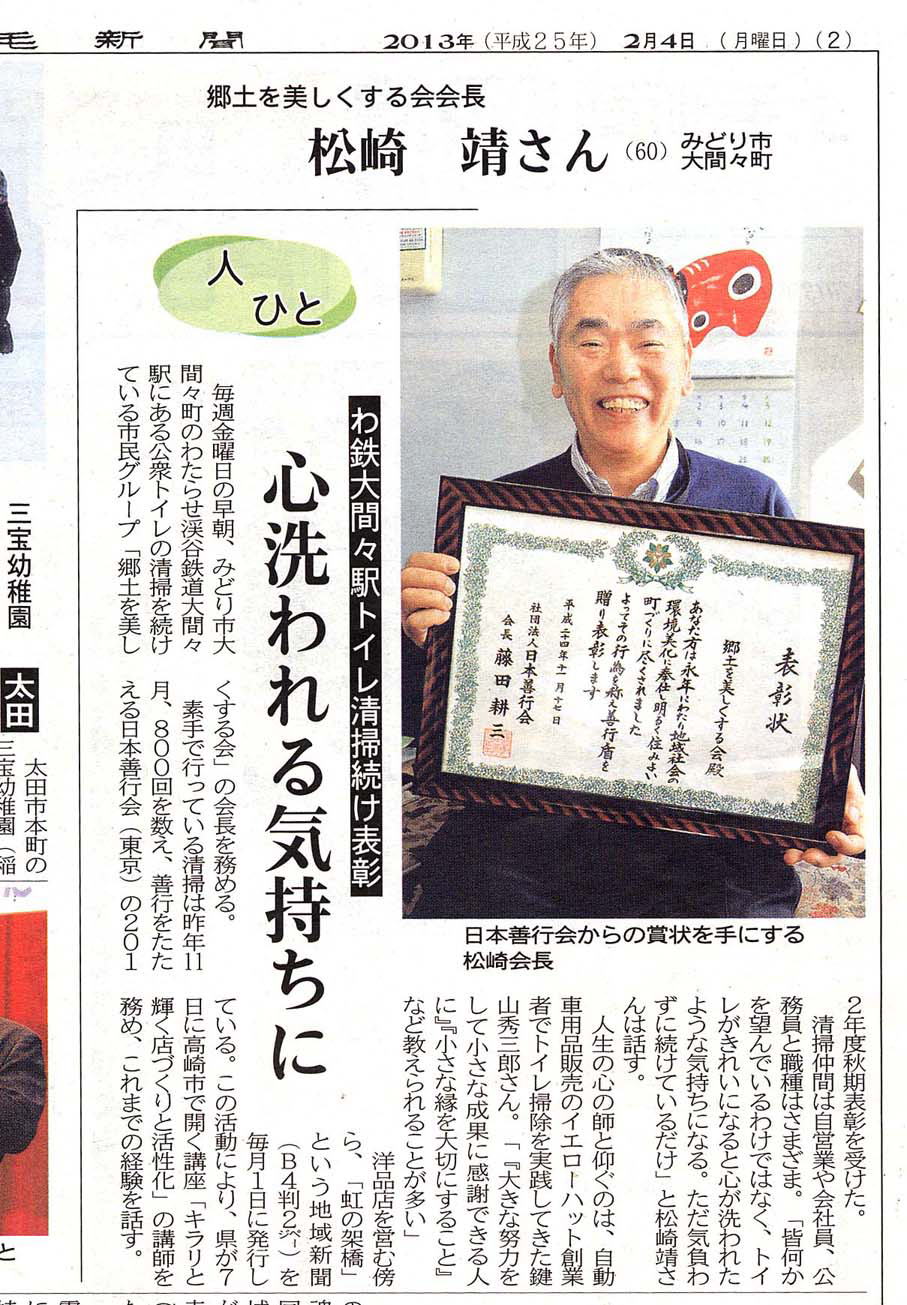 毛新聞
2013年(平成25年) 2月4日 (月曜日)(2)
郷土を美しくする会会長
松崎 靖さん(60)
みどり市
大間々町
人
ひと
わ鉄大間々駅トイレ清掃続け表彰
心洗われる気持ちに
毎週金曜日の早朝、みどり市大
間々町のわたらせ渓谷鉄道大間々
駅にある公衆トイレの清掃を続け
ている市民グループ「郷土を美し
くする会」の会長を務める。
素手で行っている清掃は昨年11
月、800回を数え、善行をたた
える日本善行会(東京)の201
2年度秋期表彰を受けた。
清掃仲間は自営業や会社員、公
務員と職種はさまざま。「皆何か
を望んでいるわけではなく、トイ
レがきれいになると心が洗われた
ような気持ちになる。ただ気負わ
ずに続けているだけ」と松崎靖さ
んは話す。
人生の心の師と仰ぐのは、自動
車用品販売のイエローハット創業
者でトイレ掃除を実践してきた鍵
山秀三郎さん。「『大きな努力を
して小さな成果に感謝できる人
に』『小さな縁を大切にすること』
など教えられることが多い」
洋品店を営む傍
ら、「虹の架橋」
という地域新聞
(B4判2㌻)を
毎月1日に発行し
ている。この活動により、県が7
日に高崎市で開く講座「キラリと
輝く店づくりと活性化」の講師を
務め、これまでの経験を話す。
表彰状
郷土を美しくする会殿
あなた方は永年にわたり地域社会の
環境美化に奉仕し明るく住みよい
町づくりに尽くされました
よってその行為を称え善行盾を
贈り表彰します
平成二十四年十一月十七日
社団法人日本善行会
会長 藤田耕三
日本善行会からの賞状を手にする
松崎会長
三宝幼稚園
太田
太田市本町の
三宝幼稚園(稲
と